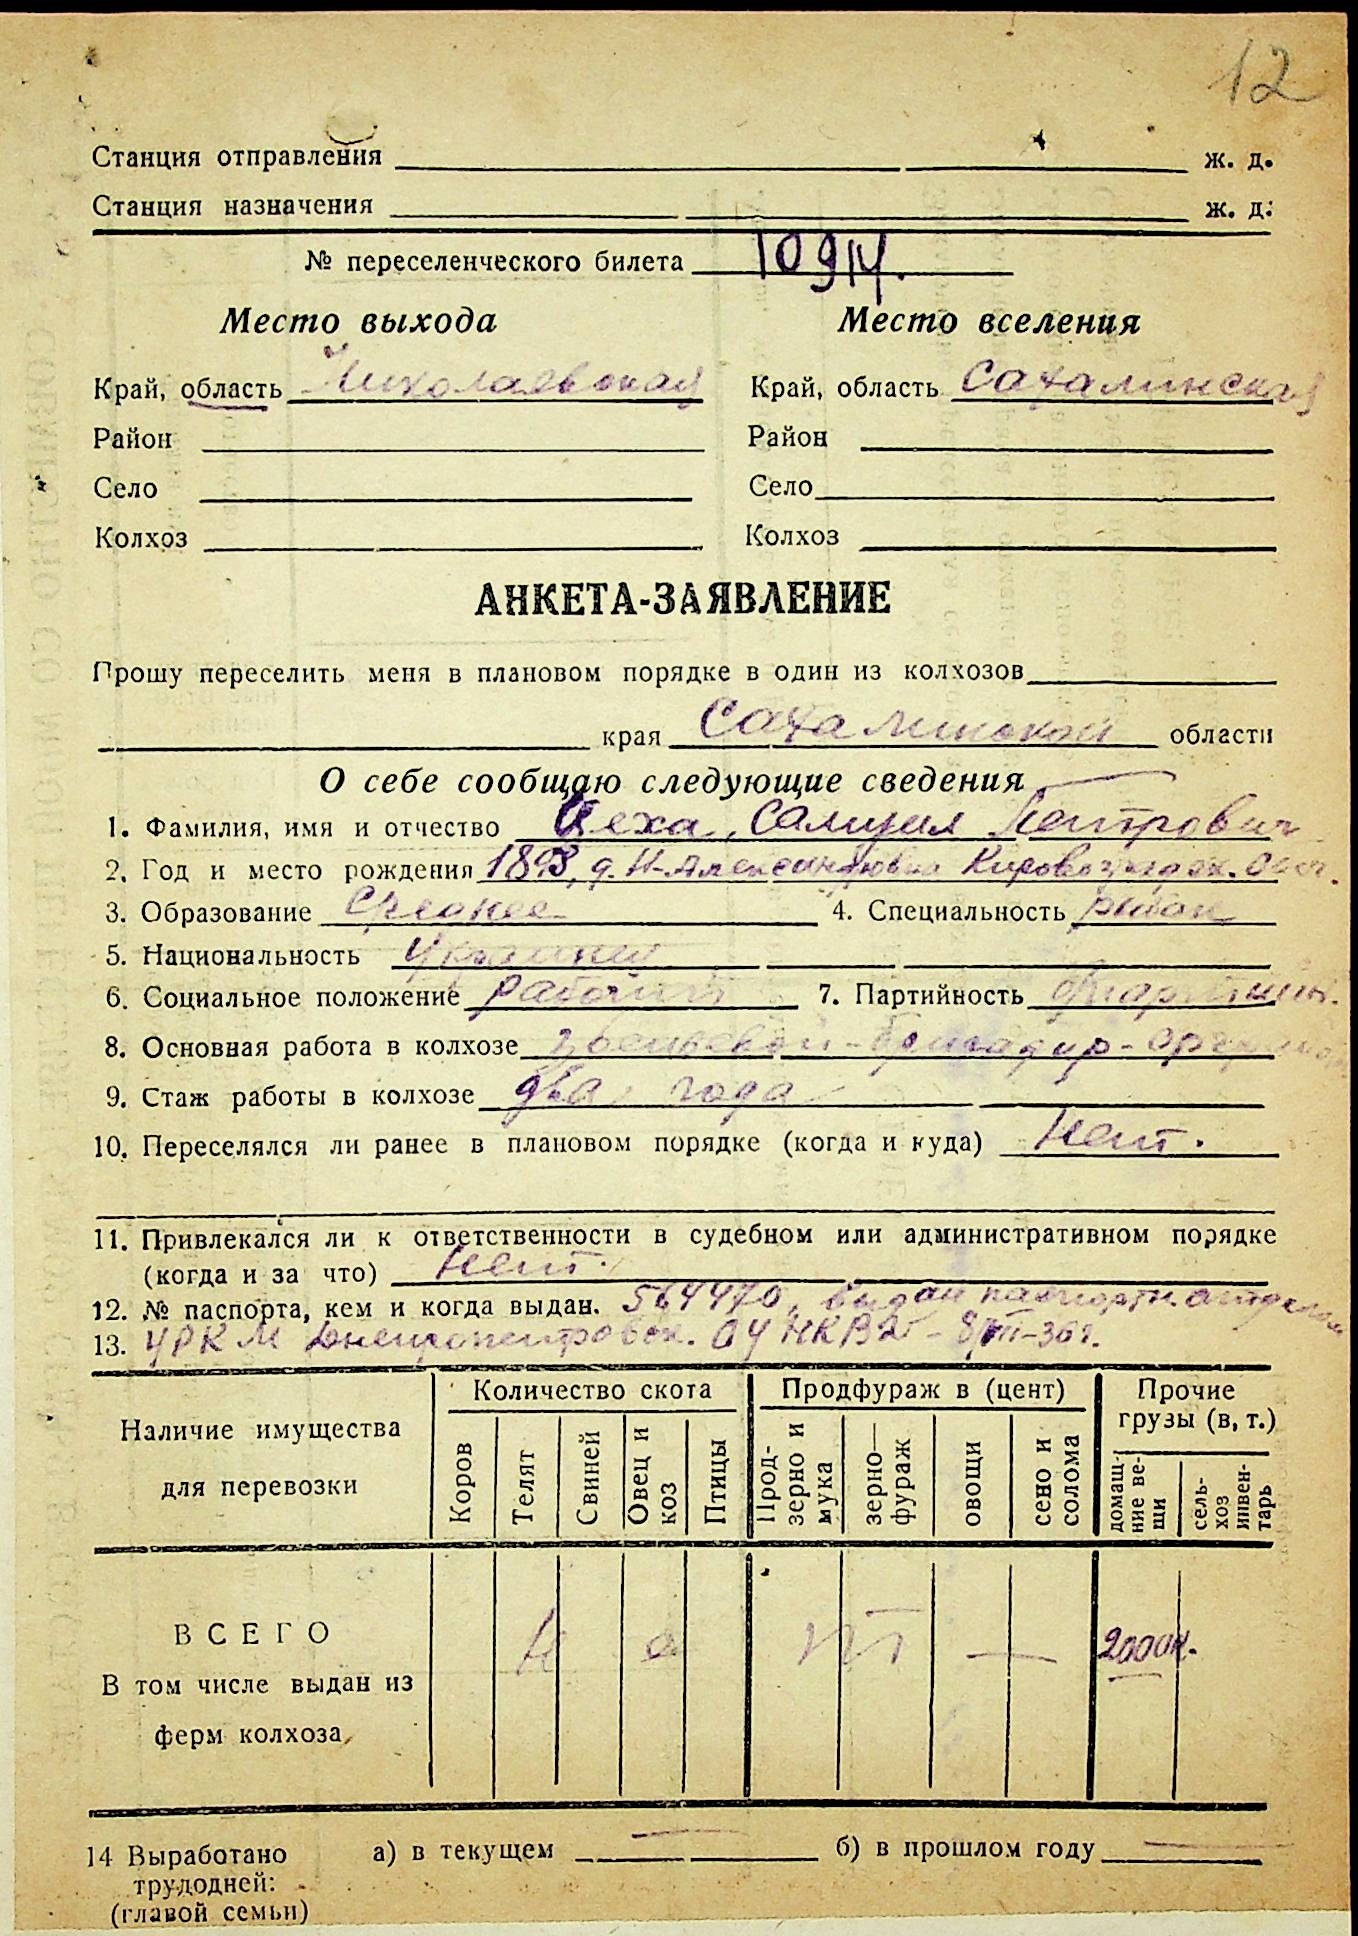 12
Станция отправления ж. д.
Станция назначения ж. д.
№ переселенческого билета 10914.
Место выхода Место вселения
Край, область Николаевская Край, область Сахалинская
Район Район
Село Село
Колхоз Колхоз
АНКЕТА-ЗАЯВЛЕНИЕ
Прошу переселить меня в плановом порядке в один из колхозов
края Сахалинской области
О себе сообщаю следующие сведения
1. Фамилия, имя и отчество Цеха, Самуил Петрович
2. Год и место рождения 1893, д. Н-Александровка Кировоградск. обл.
3. Образование Среднее 4. Специальность рыбак
5. Национальность Украинец
6. Социальное положение рабочий 7. Партийность
8. Основная работа в колхозе звеньевой - бригадир -
9. Стаж работы в колхозе два года
10. Переселялся ли ранее в плановом порядке (когда и куда) Нет.
11. Привлекался ли к ответственности в судебном или административном порядке
(когда и за что) Нет.
12. № паспорта, кем и когда выдан. 564470, выдан паспортн. отделом
13. УРКМ Днепропетровск. ОУНКВД - 8/VII-36г.
Наличие имущества для перевозки Количество скота Продфураж в (цент) Прочие грузы (в, т.)
Коров Телят Свиней Овец и коз Птицы Прод-зерно и мука зерно—фураж овощи сено и солома домаш-ние ве-щи сель-хоз инвен-тарь
ВСЕГО Н е т — 2000к.
В том числе выдан из
ферм колхоза
14 Выработано а) в текущем — б) в прошлом году —
трудодней:
(главой семьи)